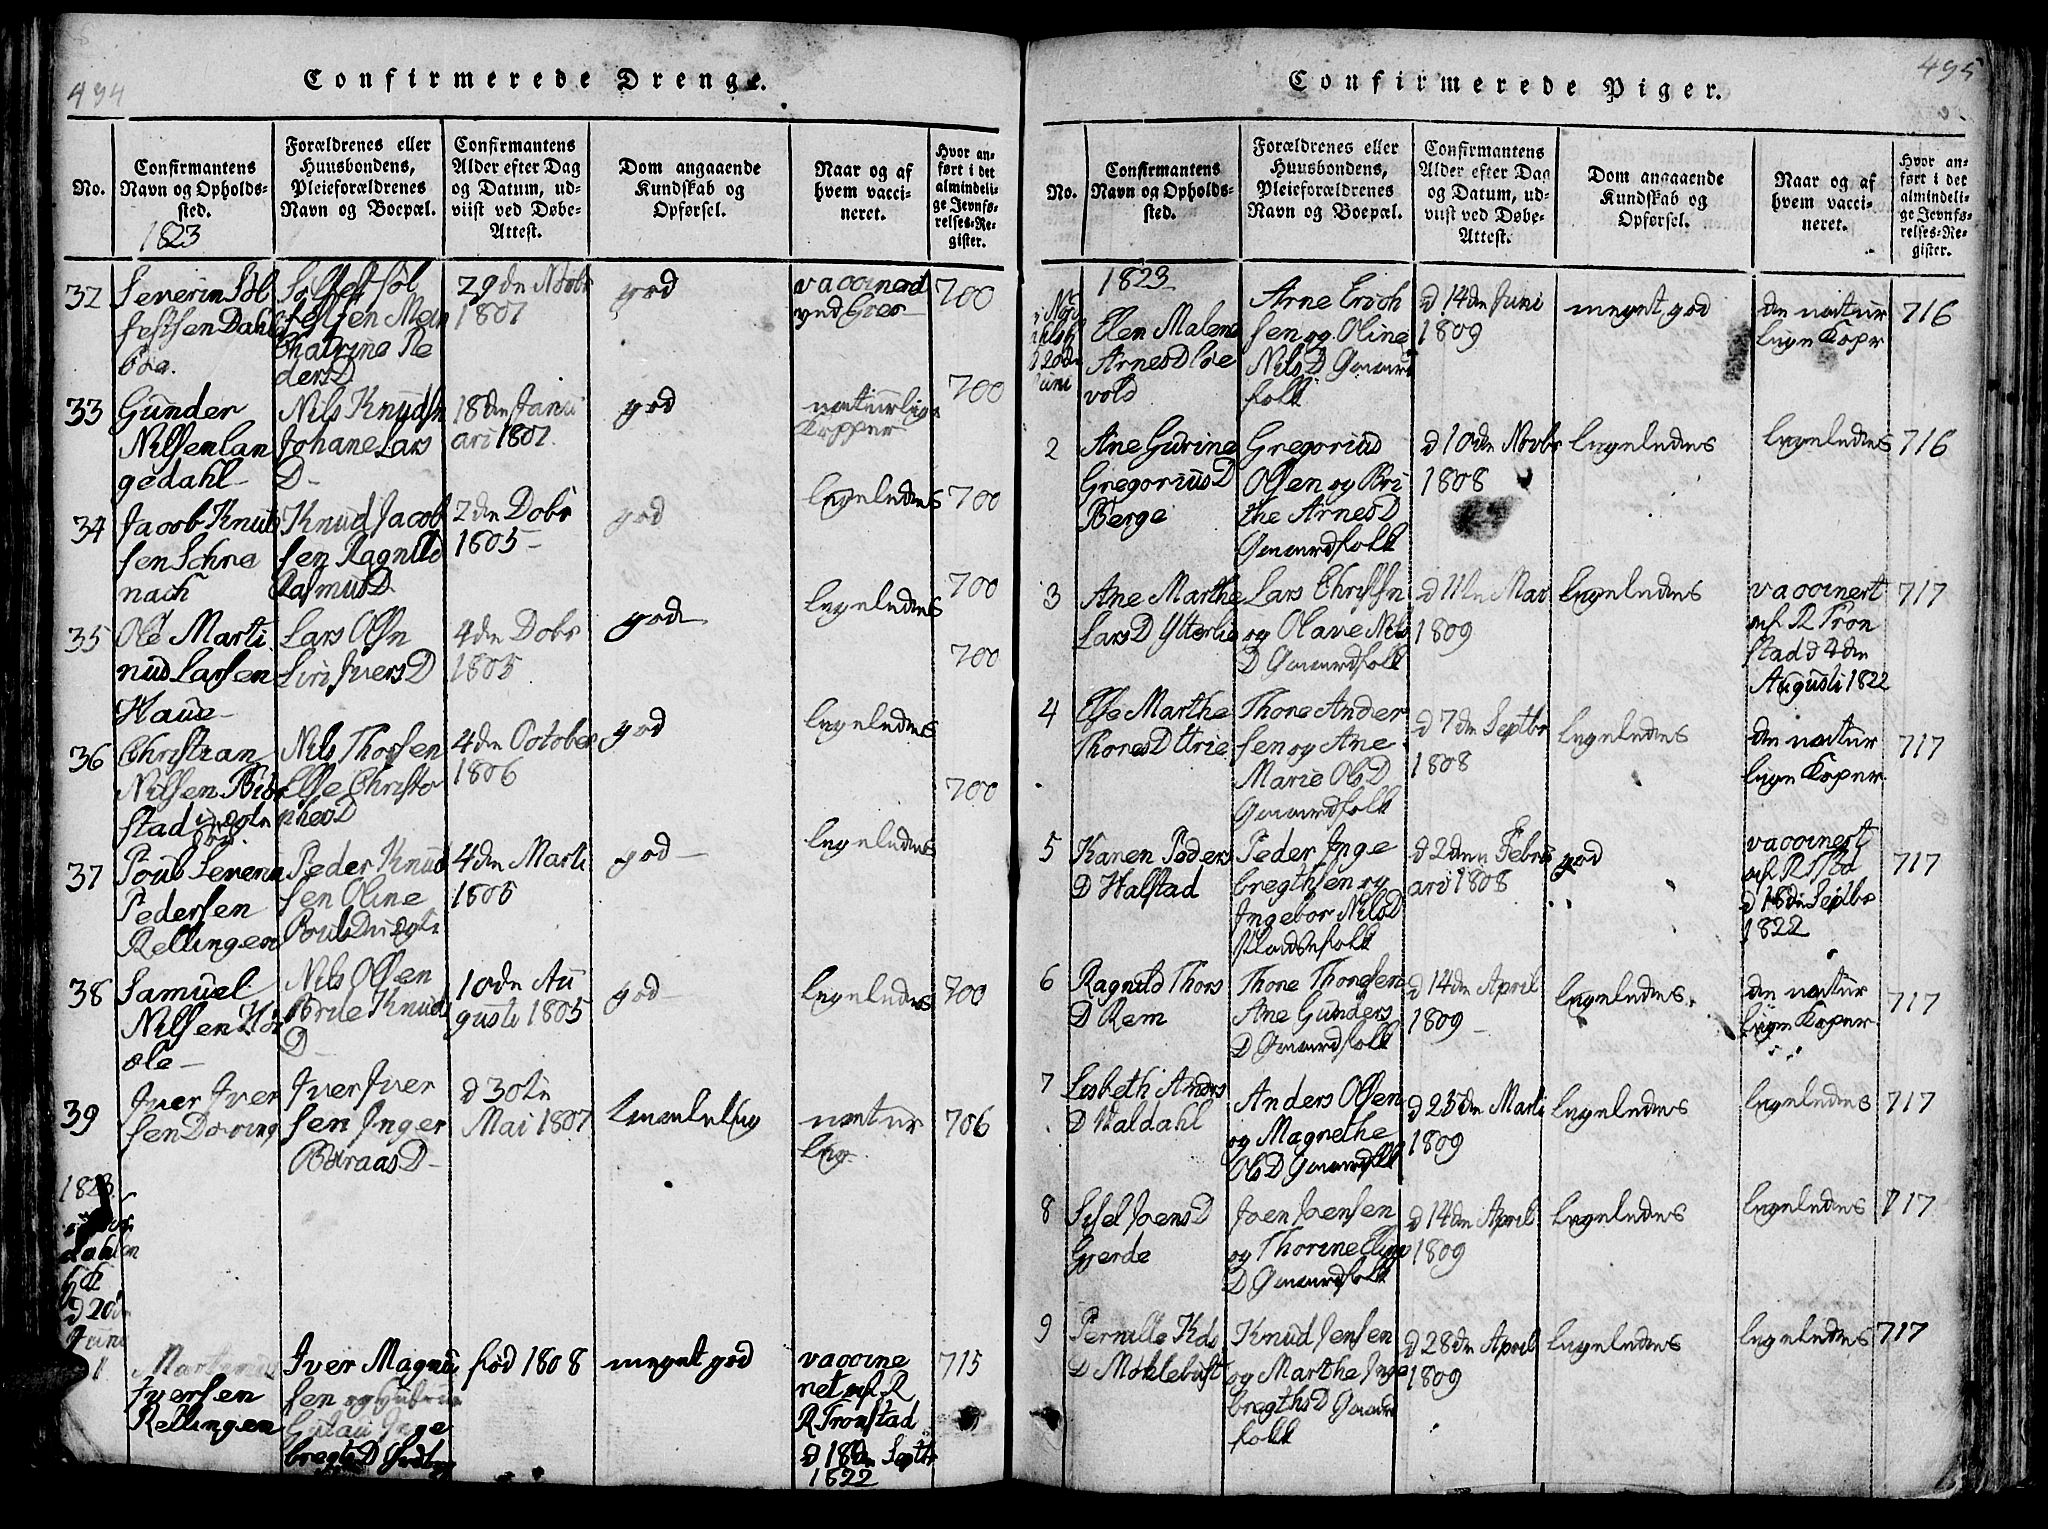 494
Confirmerede Drenge.
No.
Confirmantens
Navn og Opholds-
sted.
1823
Forældrenes eller
Huusbondens,
Pleieforældrenes
Navn og Boepæl.
Confirmantens
Alder efter Dag
og Datum, ud-
viist ved Døbe-
Attest.
Dom angaaende
Kundskab og
Opførsel.
Naar og af
hvem vacci-
neret.
Hvor an-
ført i det
almindeli-
ge Jevnfø-
relses-Re-
gister.
32
Severin Søl
festsen Dahls
bøe
Sølfest Søl
festsen
Chatrine Pe
dersD
29de Novbr
1807
god
vaccinered
700
33
Gunder
Nilsen Lan
gedahl
Nils Knudsn
Johane Lars
D
18de Janu
ari 1807
god
naturlige
Kopper
700
34
Jacob Knud
sen
nach
Knud Jacob
sen Ragnild
RasmusD
2de Dcbr
1805
god
ligeledes
700
35
Ole Marti
nus Larsen
Haue
Lars Olsn
Siri IversD
4de Dcbr
1805
god
ligeledes
700
700
36
Christian
Nilsen
stad i
Nils Thorsen
Else Christo
phersD
4de October
1806
god
ligeledes
700
37
Poul Severin
Pedersen
Rellingen
Peder Knud
sen Oline
PoulsD
4de Marti
1805
god
ligeledes
38
Samuel
Nilsen
ole
Nils Olsen
Knuds
D
10de Au
gusti 1805
god
ligeledes
700
39
Iver Iver
sen
Iver Iver
sen Inger
D
d 30te
Mai 1807
naturlig
706
1823
d 20de
Juni
1
Martinus
Iversen
Rellingen
Iver Magnu
sen og
Inge
bregtsD
fød 1808
meget god
vaccine
ret af R
R Tronstad
d 18de Septbr
1822
715
495
Confirmerede Piger.
No.
Confirmantens
Navn og Opholds-
sted.
Forældrenes eller
Huusbondens,
Pleieforældrenes
Navn og Boepæl.
Confirmantens
Alder efter Dag
og Datum, ud-
viist ved Døbe-
Attest.
Dom angaaende
Kundskab og
Opførsel.
Naar og af
hvem vacci-
neret.
Hvor an-
ført i det
almindeli-
ge Jevnfø-
relses-Re-
gister.
1823
d 20de
Juni
Elen Malene
ArnesD Løe
vold
Arne Erich
sen og Oline
NilsD Gaard
folk
d 14de Juni
1809
meget god
de natur
lige Kopr
716
2
Ane Gurine
GregoriusD
Berge
Gregorius
Olsen og Bri
the ArnesD
Gaardfolk
d 10de Novbr
1808
ligeledes
ligeledes
716
3
Ane Marthe
LarsD Ytterlie
Lars Christsn
og Olave Nils
D Gaardfolk
d 11te Mai
1809
ligeledes
vaccinert
af R Tron
stad d 4de
Augusti 1822
717
4
Else Marthe
ThoresD Urie
Thore Ander
sen og Ane
Marie OlsD
Gaardfolk
d 7de Septbr
1808
ligeledes
de natur
lige Koper
717
5
Karen Peders
D Halstad
Peder Inge
bregthsen og
Ingebor NilsD
Pladsefolk
d 2den Febru
ari 1808
god
vaccinert
af R
d 18de Septbr
1822
717
6
Ragnild Thors
D Rem
Thore Thoresen
Ane Gunders
D Gaardfolk
d 14de April
1809
ligeledes
de natur
lige Koper
717
7
Lisbeth Anders
D Haldahl
Anders Olsen
og Magrethe
OlsD Gaardfolk
d 23de Marti
1809
ligeledes
ligeledes
717
8
Sisel JoensD
Gjerde
Joen Joensen
og Thorine Eling
D Gaardfolk
d 14de April
1809
ligeledes
ligeledes
717
9
Pernille Kds
D Moklebust
Knud Jensen
og Marthe Inge
bregthsD Gaard
folk
d 28de April
1809
ligeledes
ligeledes
717